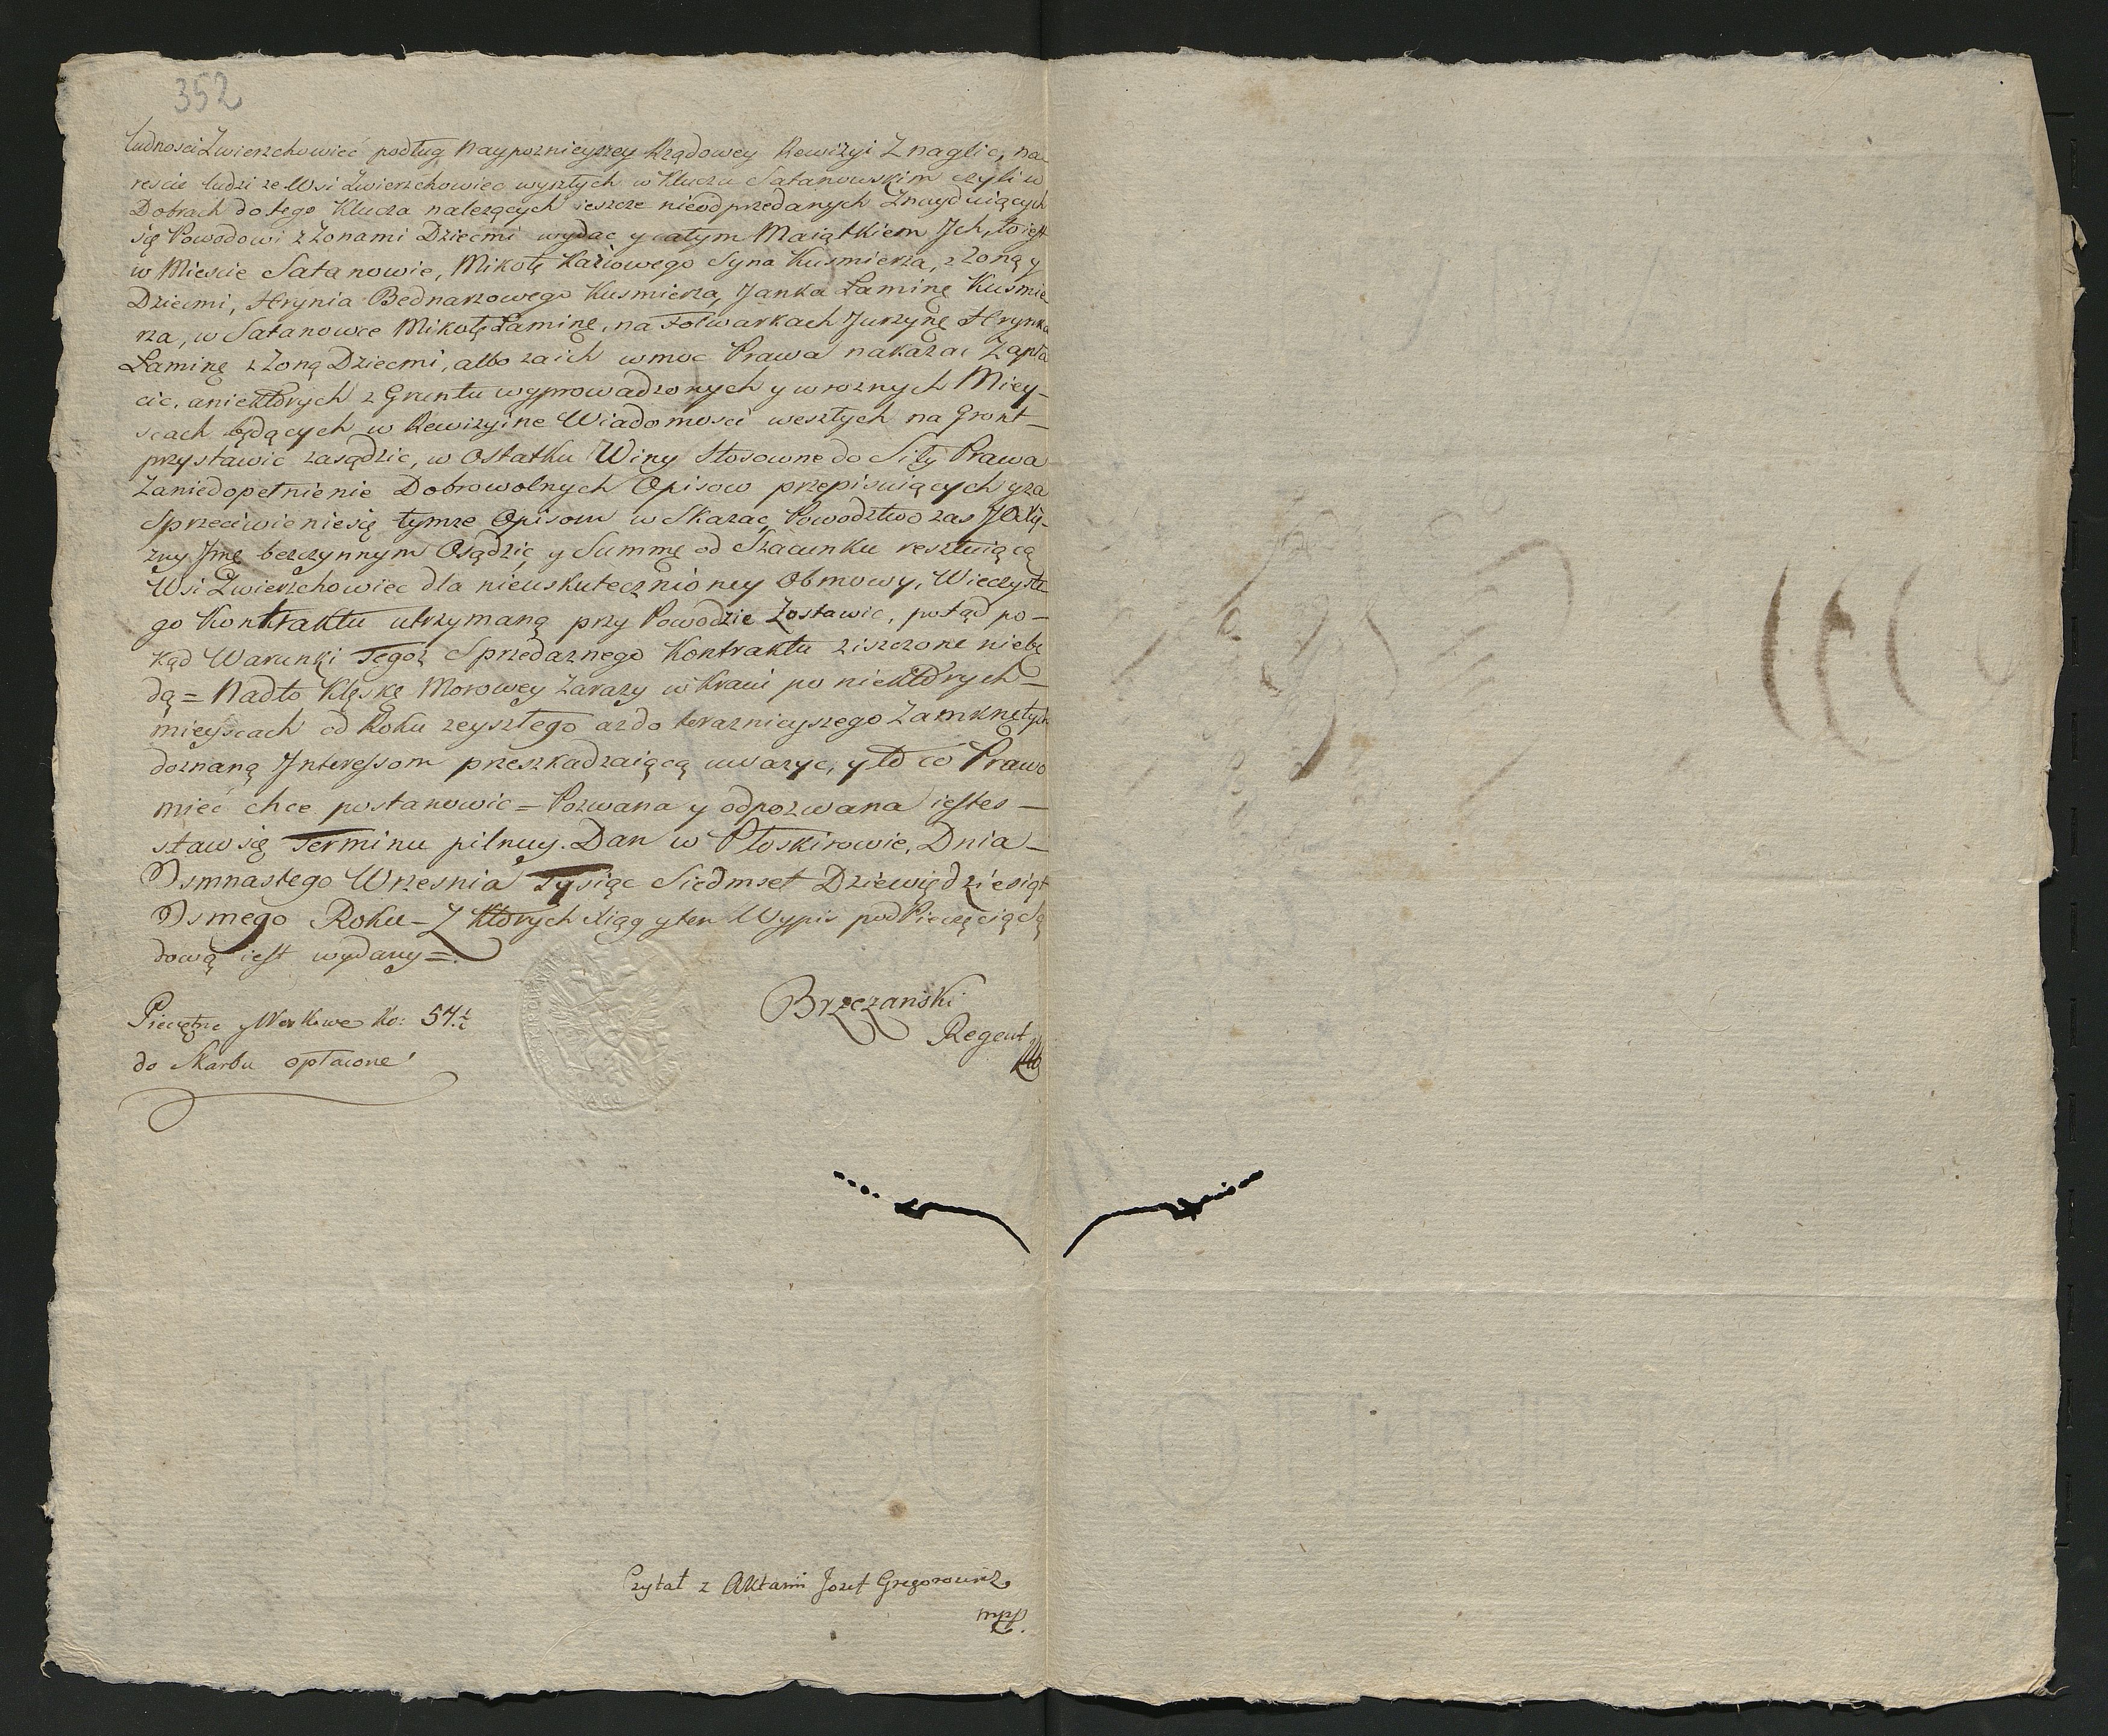 352
ludnosci Zwierzchowiec podług Naypoznieyszey Rządowey Rewizyi Znaglic, na
rescie ludzi ze Wsi Zwierzchowiec wyszłych w Kluczu Satanowskim czyli w
Dobrach do tego Klucza nalezących ieszcze nieodprzedanych Znayduiących
się Powodowi z Zonami Dziecmi wydac y całym Maiątkiem Jch, to iest
w Miescie Satanowie, Mikołę Syna Kusmierza, z Zoną y
Dziecmi, Hrynia Bednarzowego Kusmierza, Janka Łaminę Kusmie
rza, w Satanowce Mikołę Łaminę, na Folwarkach Jurzynę Hrynka
Łaminę z Zoną Dziecmi, albo za ich w moc Prawa nakazac Zapła
cic, a niektorych z Gruntu wyprowadzonych y w roznych Miey-
scach będących w Rewizyine Wiadomosci weszłych na Gront-
przystawic zasądzic, w Ostatku Winy Stosowne do Siły Prawa
Zaniedopełnienie Dobrowolnych Opisow przepisuiących y za
Sprzeciwieniesię tymze Opisom w Skazac, Powodztwo zas
bezczynnym Osądzic, y Summę od Szacunku resztuiącą
Wsi Zwierzchowiec dla nieuskutecznioney Obmowy, Wieczyste
go Kontraktu utrzymaną przy Powodzie Zostawic, potąd po-
kąd Warunki Tegoz Sprzedaznego Kontraktu ziszczone niebę
dą = Nadto Klęskę Morowey Zarazy w Kraiu po niektorych-
mieyscach od Roku zeyszłego az do teraznieyszego Zamknętych
doznaną Jnteressom przeszkadzaiącą uwazyc, y to co Prawo
miec chce postanowic = Pozwana y odpozwana iestes-
staw się Terminu pilnuy. Dan w Płoskirowie, Dnia-
Osmnastego Wrzesnia Tysiąc Siedmset Dziewiędziesiąt
Osmego Roku - Z Ktorych Xiąg y ten Wypis pod Pieczęcią Są
dową iest wydany =
Brzezanski
Regent
Pieczętne y Workowe Ko: 57 1/2
do Skarbu opłacone
Czytał z Aktami Jozef Gregorowicz
mpp.